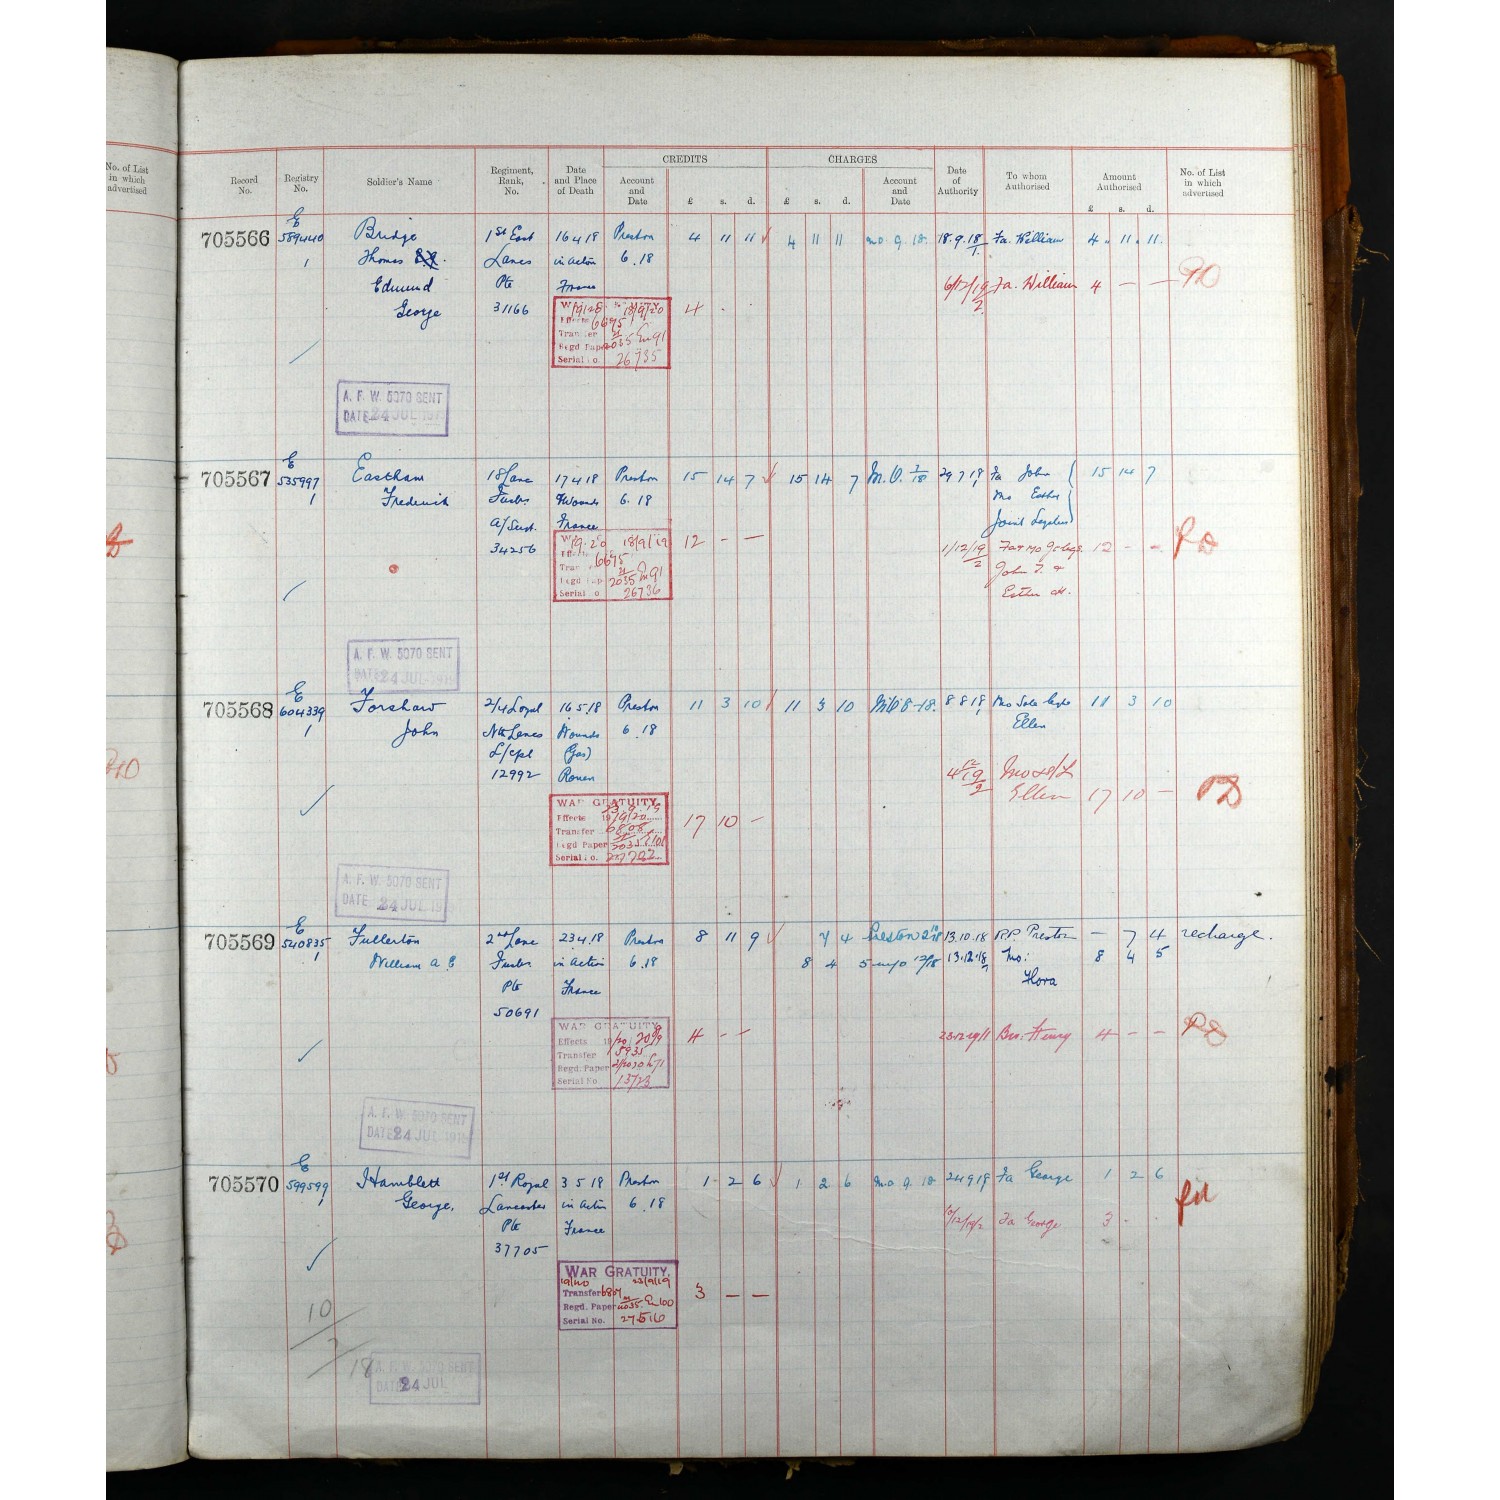 No. of List
in which
advertised
CREDITS CHARGES
Record No. Registry No. Soldier's Name Regiment, Rank, No. Date and Place of Death Account and Date £ s. d. £ s. d. Account and Date Date of Authority To whom Authorised Amount Authorised £ s. d. No. of List in which advertised
E
705566 589440 Bridge 1st East 16 4 18 Preston 4 11 11 4 11 11 mo. 9. 18. 18.9.18 Fa. William 4. 11. 11.
1 Thomas Lancs in action 6.18 1
Edmund Pte France 6/12/19 Fa. William 4 — — PD
George 31166 2
WAR GRATUITY 18/9/20 4
Effects 6675
Transfer
Regd Paper 2035 En 91
Serial No. 26735
A. F. W. 5070 SENT
DATE 24 JUL 191
E
705567 535997 Eastham 18 Lanc 17 4 18 Preston 15 14 7 15 14 7 M.O. 7/18 29 7 18 Fa John 15 14 7
1 Frederick Fusrs Wounds 6. 18 1 Mo Esther
A/Sergt. France Joint Legatees
34256 18/9/19 12 — — 1/12/19 Fa & Mo Jt Legs. 12 — — PD
Effects 6675 2 John T. &
Regd Pap 2035 En 91 Esther M.
Serial No 26736
A. F. W. 5070 SENT
DATE 24 JUL 191
E
705568 604339 Forshaw 2/4 Loyal 16 5.18 Preston 11 3 10 11 3 10 M.O. 8-18. 8 8 18 Mo Sole Legt 11 3 10
1 John Nth Lancs Wounds 6.18 1 Ellen
L/Cpl (Gas)
12992 Rouen 4/12/19 Mo & S/L
2 Ellen 17 10 — PD
WAR GRATUITY.
Effects 19/9/20 17 10 —
Transfer 6808
Regd Paper 2035 E 101
Serial No. 27702
A. F. W. 5070 SENT
DATE 24 JUL 191
E
705569 540835 Fullerton 2nd Lanc 23.4.18 Preston 8 11 9 7 4 Preston 2 10/18 13.10.18 R.P. Preston — 7 4 recharge.
1 William A E Fusrs in action 6.18 8 4 5 m/o 12/18 13.12.18 Mo: 8 4 5
Pte France Flora
50691
WAR GRATUITY 4 — — 23.12.19/1 Bro: Henry 4 — — PD
Effects
Transfer 5935
Regd. Paper
Serial No. 13723
A. F. W. 5070 SENT
DATE 24 JUL 191
E
705570 599599 Hamblett 1st Royal 3 5 18 Preston 1 2 6 1 2 6 mo 9. 18. 24 9 18 Fa George 1 2 6
1 George. Lancaster in action 6.18 PD
Pte France 10/12/19/2 Fa George 3 -
37705
WAR GRATUITY.
19/20 23/9/19 3 — —
Transfer 6804
Regd. Paper 2035 En 100
Serial No. 27516
10
/
18
A. F. W. 5070 SENT
DATE 24 JUL